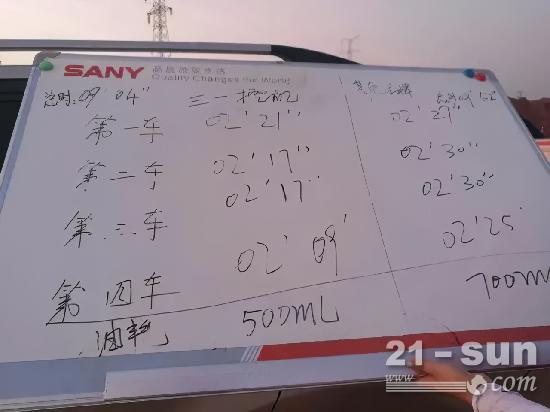 SANY 品质改变世界
Quality Changes the World
总时:09'04" 三一挖机 其他品牌
第一车 02'21" 02'27"
第二车 02'17" 02'30"
第三车 02'17" 02'30"
第四车 02'09' 02'25'
油耗 500ML 700ML
21-sun
www. .com